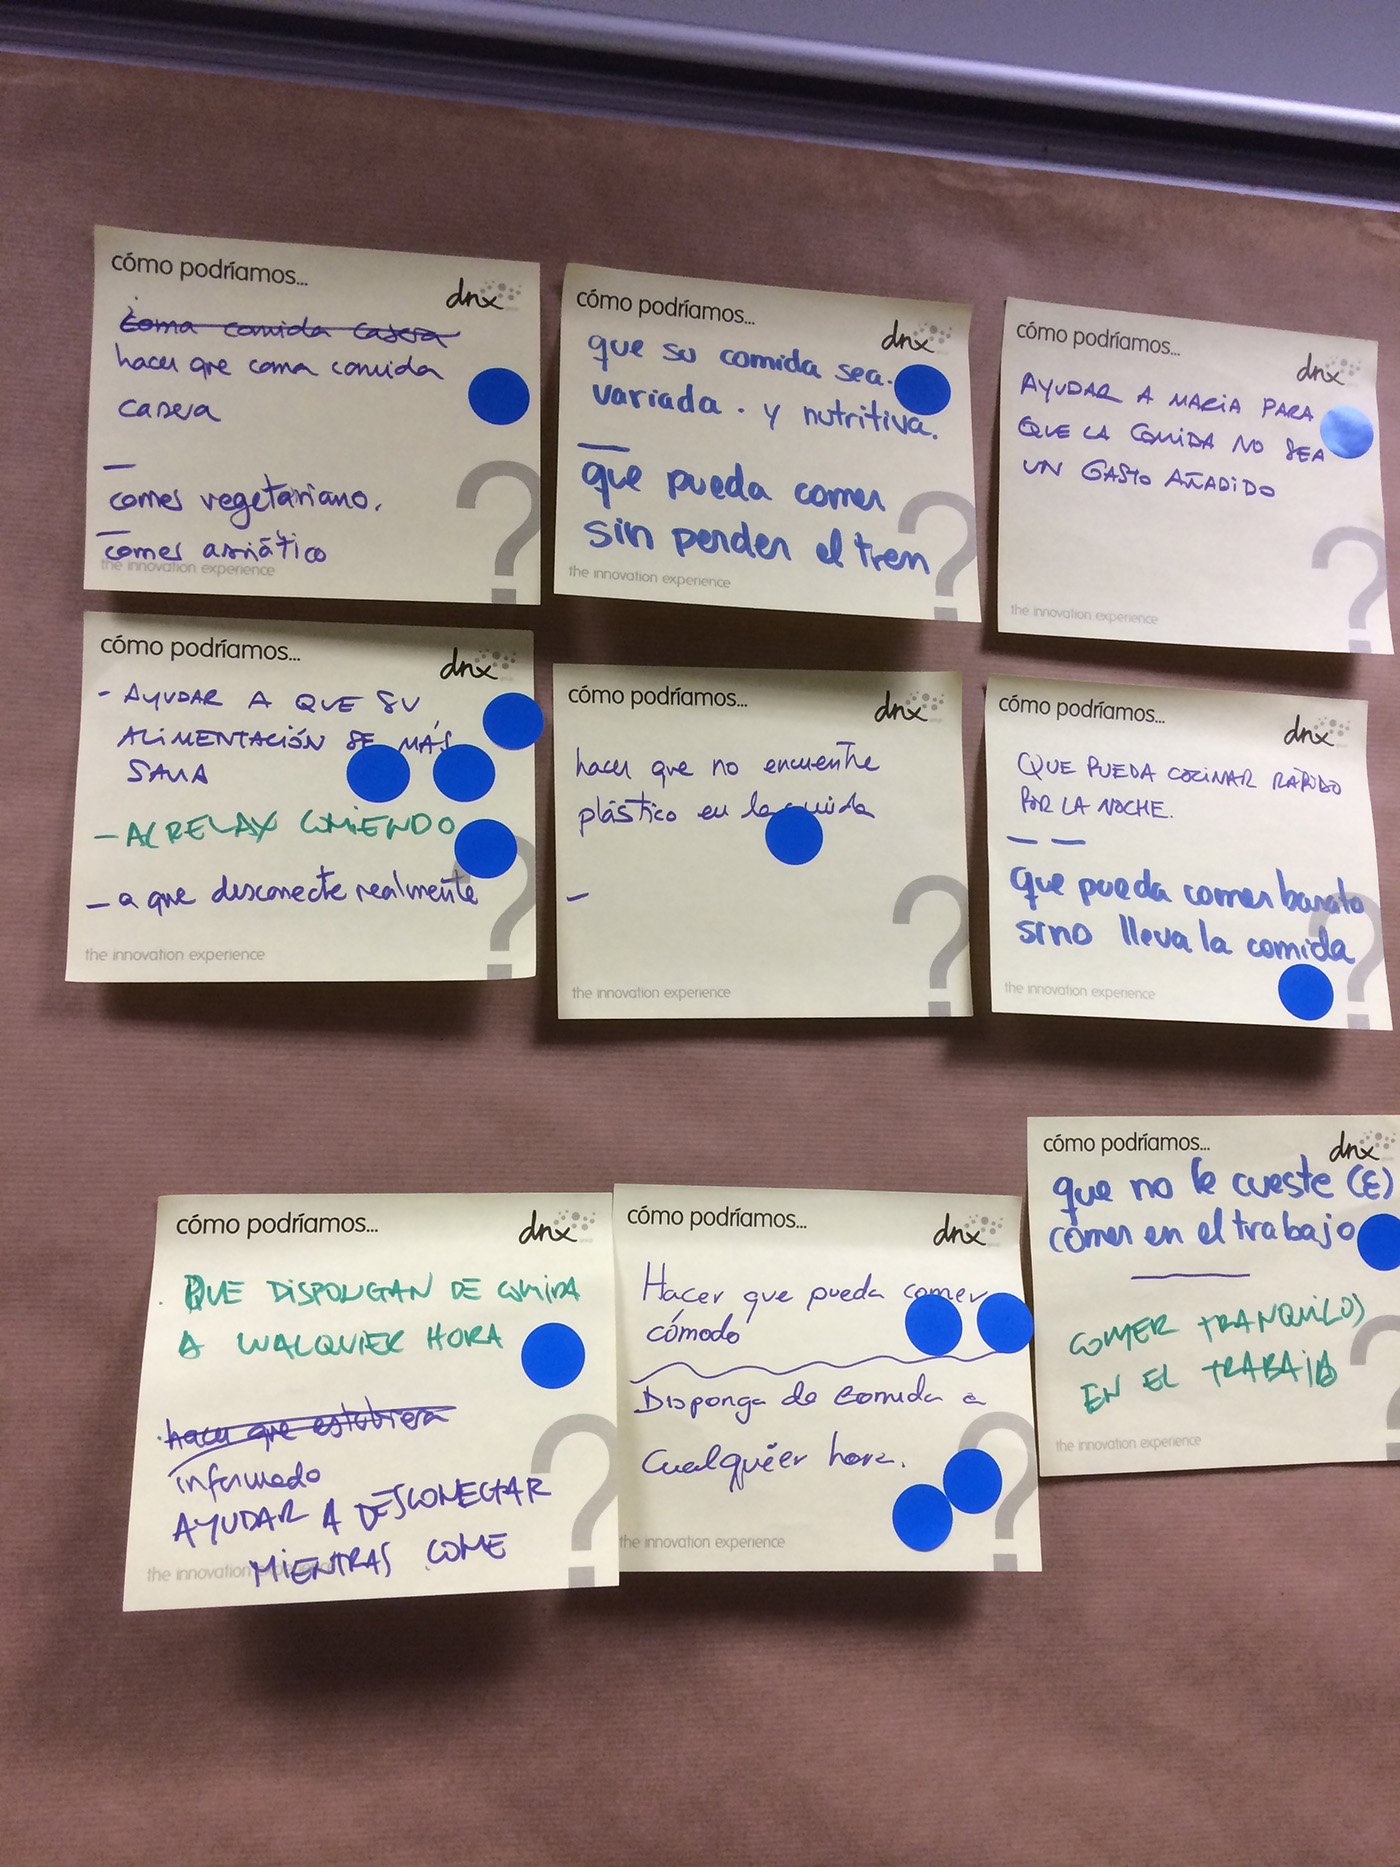 cómo podríamos...
dnx
¿coma comida casera
hacer que coma comida
casera
—
comer vegetariano.
—
comer asiático
the innovation experience
?
cómo podríamos...
dnx
que su comida sea.
variada. y nutritiva.
—
que pueda comer
sin perder el tren
the innovation experience
?
cómo podríamos...
dnx
AYUDAR A MARIA PARA
QUE LA COMIDA NO SEA
UN GASTO AÑADIDO
the innovation experience
?
cómo podríamos...
dnx
- AYUDAR A QUE SU
ALIMENTACIÓN SE MÁS
SANA
- AL RELAX COMIENDO
- a que desconecte realmente
the innovation experience
?
cómo podríamos...
dnx
hacer que no encuentre
plástico en la comida
—
the innovation experience
?
cómo podríamos...
dnx
QUE PUEDA COCINAR RÁPIDO
POR LA NOCHE.
— —
que pueda comer barato
sino lleva la comida
the innovation experience
?
cómo podríamos...
dnx
. QUE DISPONGAN DE COMIDA
A CUALQUIER HORA
. hacer que estubiera
informado
AYUDAR A DESCONECTAR
MIENTRAS COME
the innovation experience
?
cómo podríamos...
dnx
Hacer que pueda comer
cómodo
Disponga de comida a
Cualquier hora.
the innovation experience
?
cómo podríamos...
dnx
que no le cueste (€)
comer en el trabajo
COMER TRANQUILO)
EN EL TRABAJO
the innovation experience
?